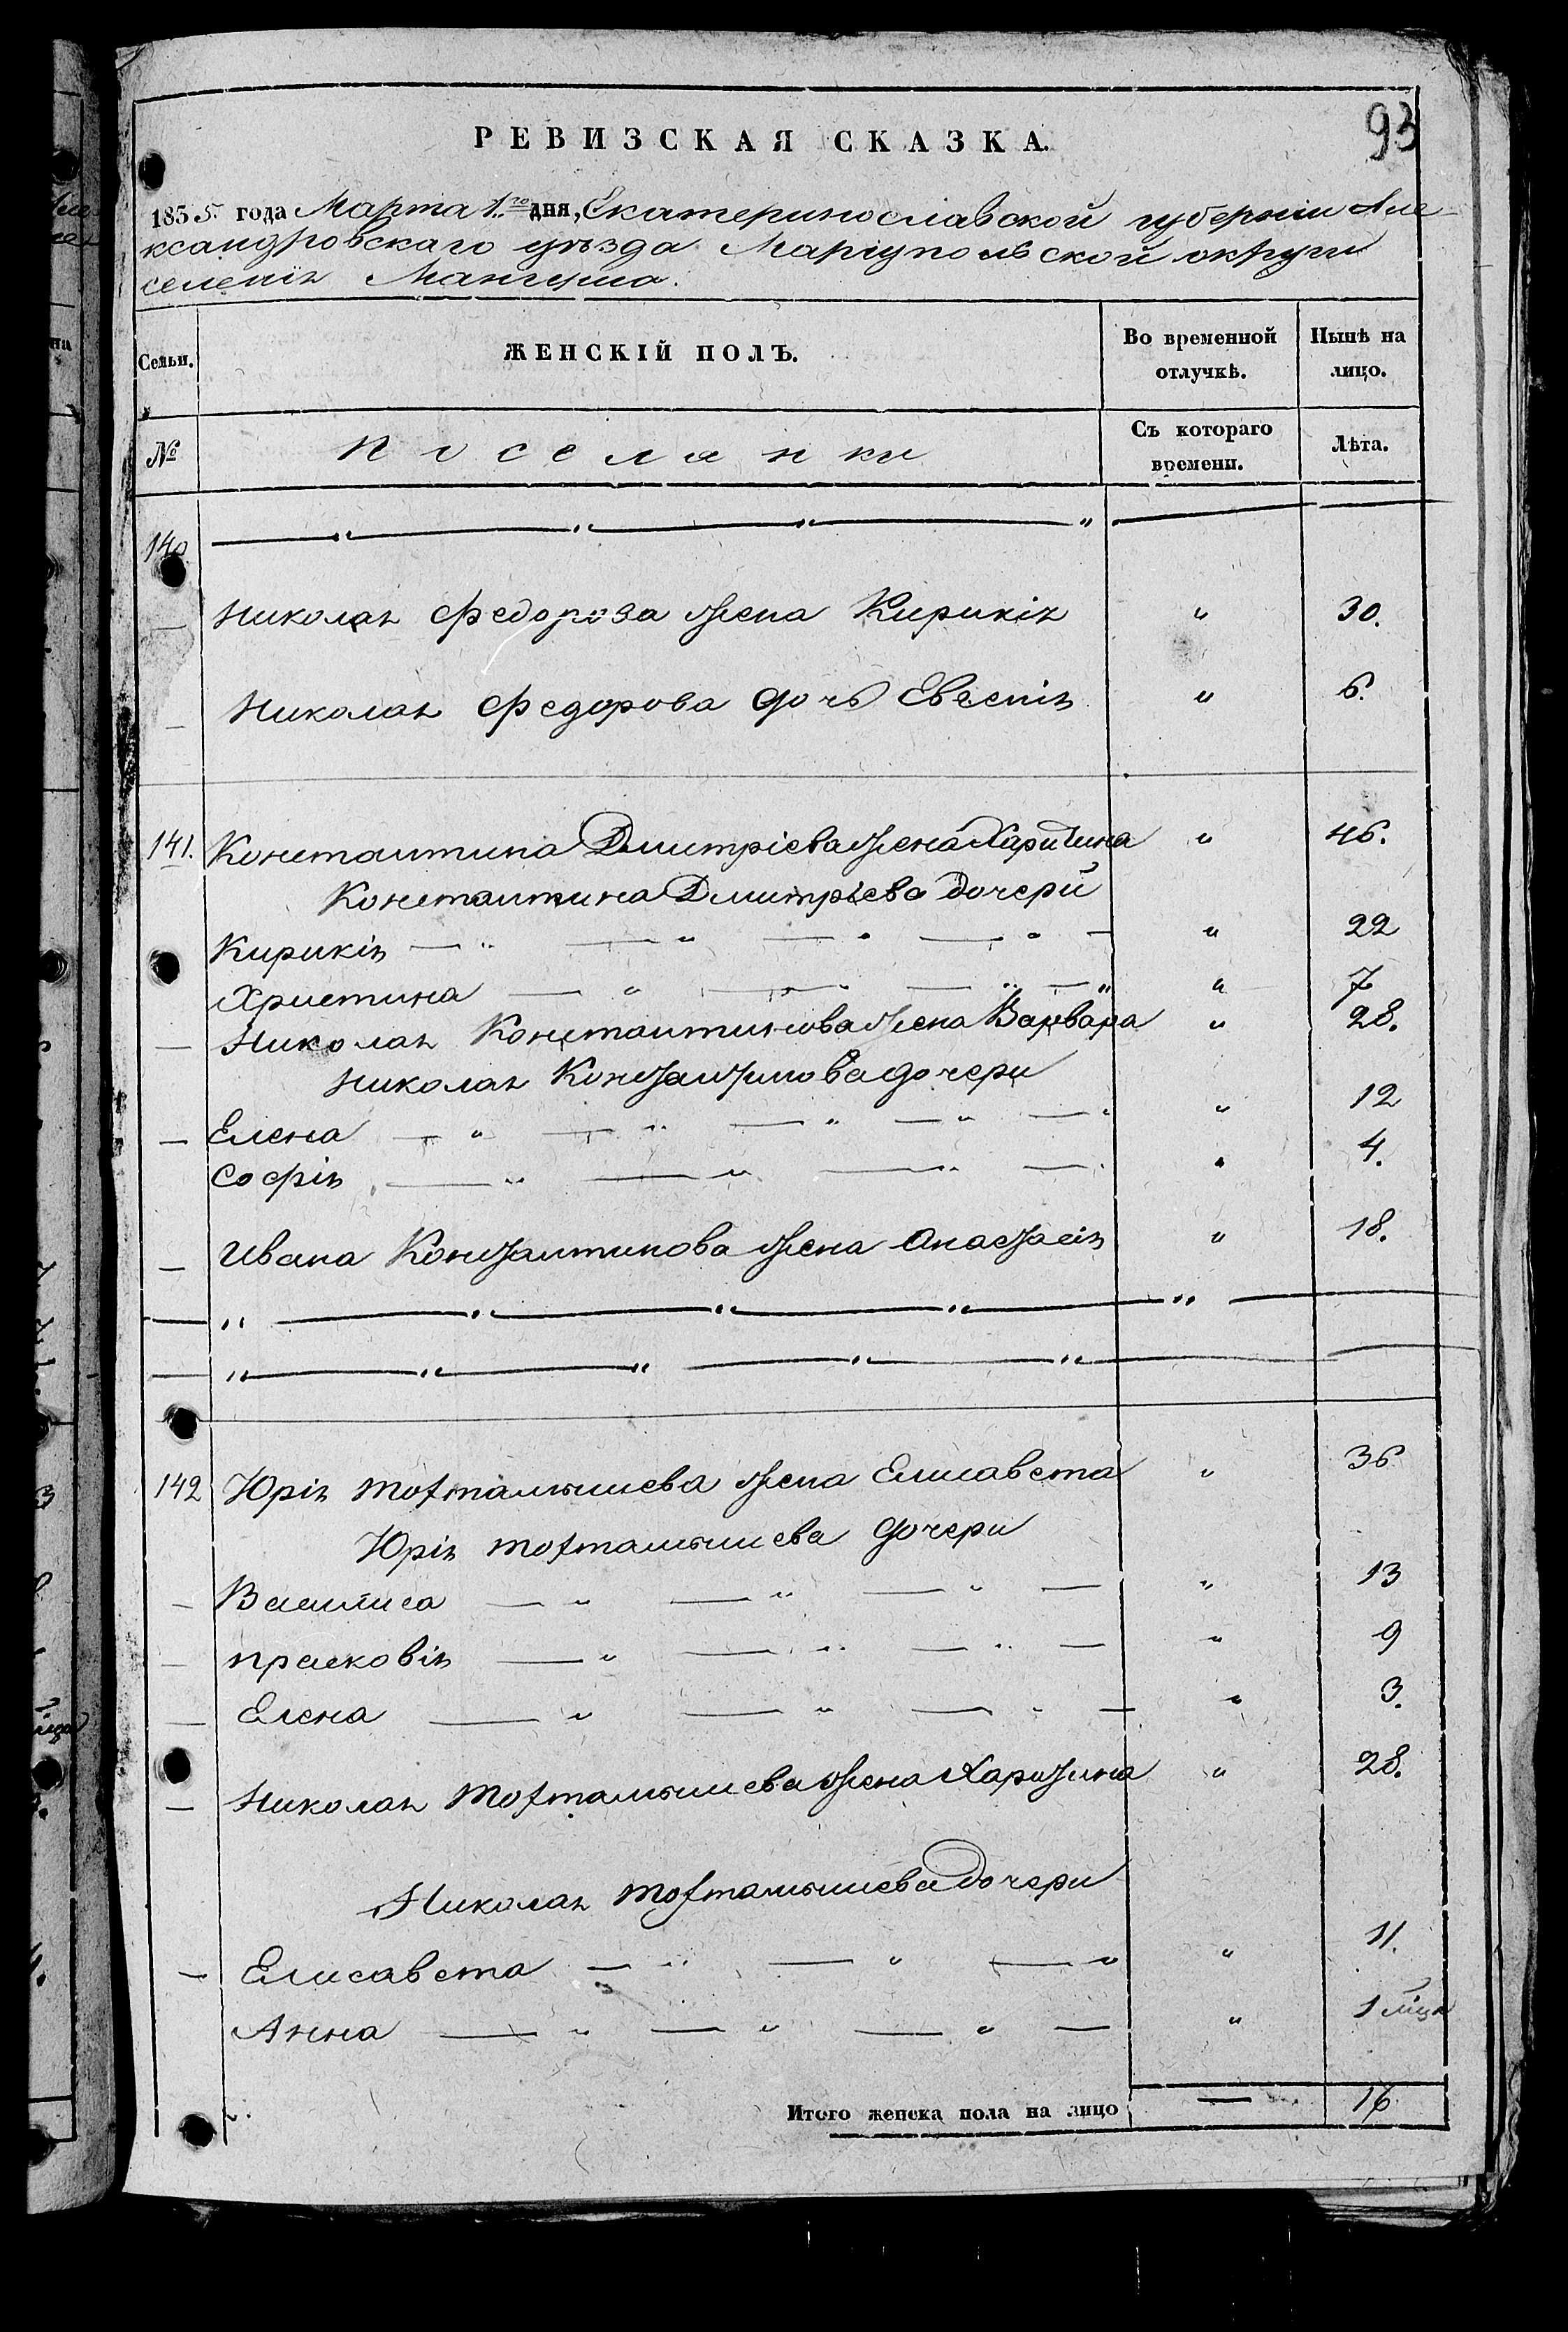 93
РЕВИЗСКАЯ СКАЗКА.
1855. года Марта 1.го дня, Екатеринославской губерніи Але-
ксандровскаго уѣзда Маріупольской округи
селенія Мангуша.
Семьи. ЖЕНСКІЙ ПОЛЪ. Во временной отлучкѣ. Нынѣ на лицо.
№ поселянки Съ котораго времени. Лѣта.
140 — " — " — " — "
Николая Федорова жена Кирикія " 30.
Николая Федорова дочь Евгенія " 6.
141. Константина Дмитріева жена Харитина " 46.
Константина Дмитріева дочери
Кирикія — " — " — " — " — " 22
Христина — " — " — " — " " 7
— Николая Константинова жена Варвара " 28.
Николая Константинова дочери
— Елена — " — " — " — " — " " 12
Софія — " — " — " — " 4.
— Ивана Константинова жена Анастасія " 18.
— " — " — " — " — " —
— " — " — " — " — " —
142 Юрія Тохтамышева жена Елисавета " 36
Юрія Тохтамышева дочери
— Василиса — " — " — " — " 13
— Прасковія — " — " — " — " 9
— Елена — " — " — " — " 3.
— Николая Тохтамышева жена Харитина " 28.
Николая Тохтамышева дочери
— Елисавета — " — " — " " 11.
Анна — " — " — " — " 1 мѣца
Итого женска пола на лицо — 16